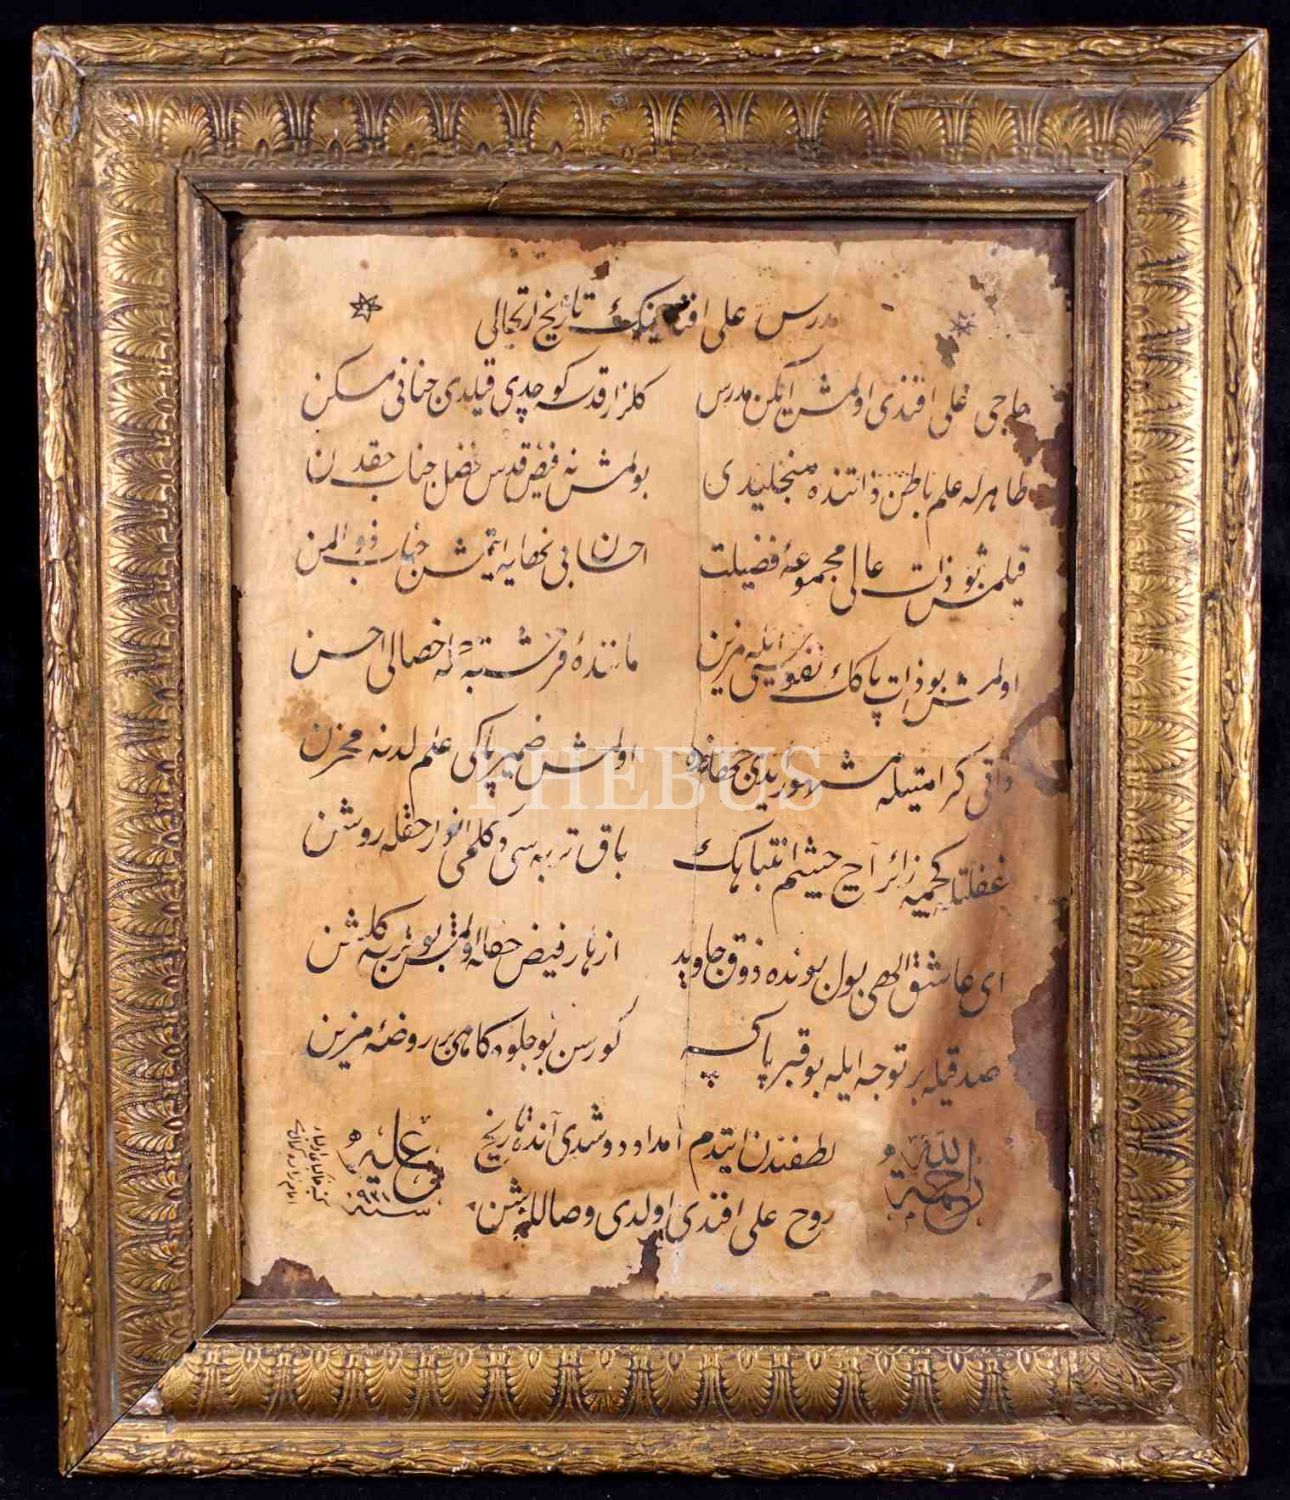 مدرس علی افندینك تاریخ ارتحالی
حاجی علی افندی اولمش ایكن مدرس كلزار قدسه كوچدی قیلدی جنانی مسكن
ظاهرله علم باطن ذاتنده منجلیدی بولمش نه فیض قدس فضل جناب حقدن
قیلمش بو ذات عالی مجموعهٔ فضیلت احسان بی نهایه ایتمش جناب ذو المنن
اولمش بو ذات پاك تقوی ایله مزین مانندهٔ فرشته خصالی احسن
ذاتی كرامتیله مشهور یدی اولمش ضمیر پاكی علم لدنه مخزن
غفلتله كچمه زائر آچ چشم انتباهك باق تربه سی دكلمی انوار حقله روشن
ای عاشق الهی بول بونده ذوق جاوید ازهار فیض حقله اولمش بو تربه كلشن
صدقیله بر توجه ایله بو قبر پاكه كورسن بو جلوه كاهی بر روضهٔ مزین
رحمة الله علیه
لطفندن ایتدم امداد دوشدی آنده تاریخ
روح علی افندی اولدی وصالله شن
PHEBUS
سنه ٩٢١